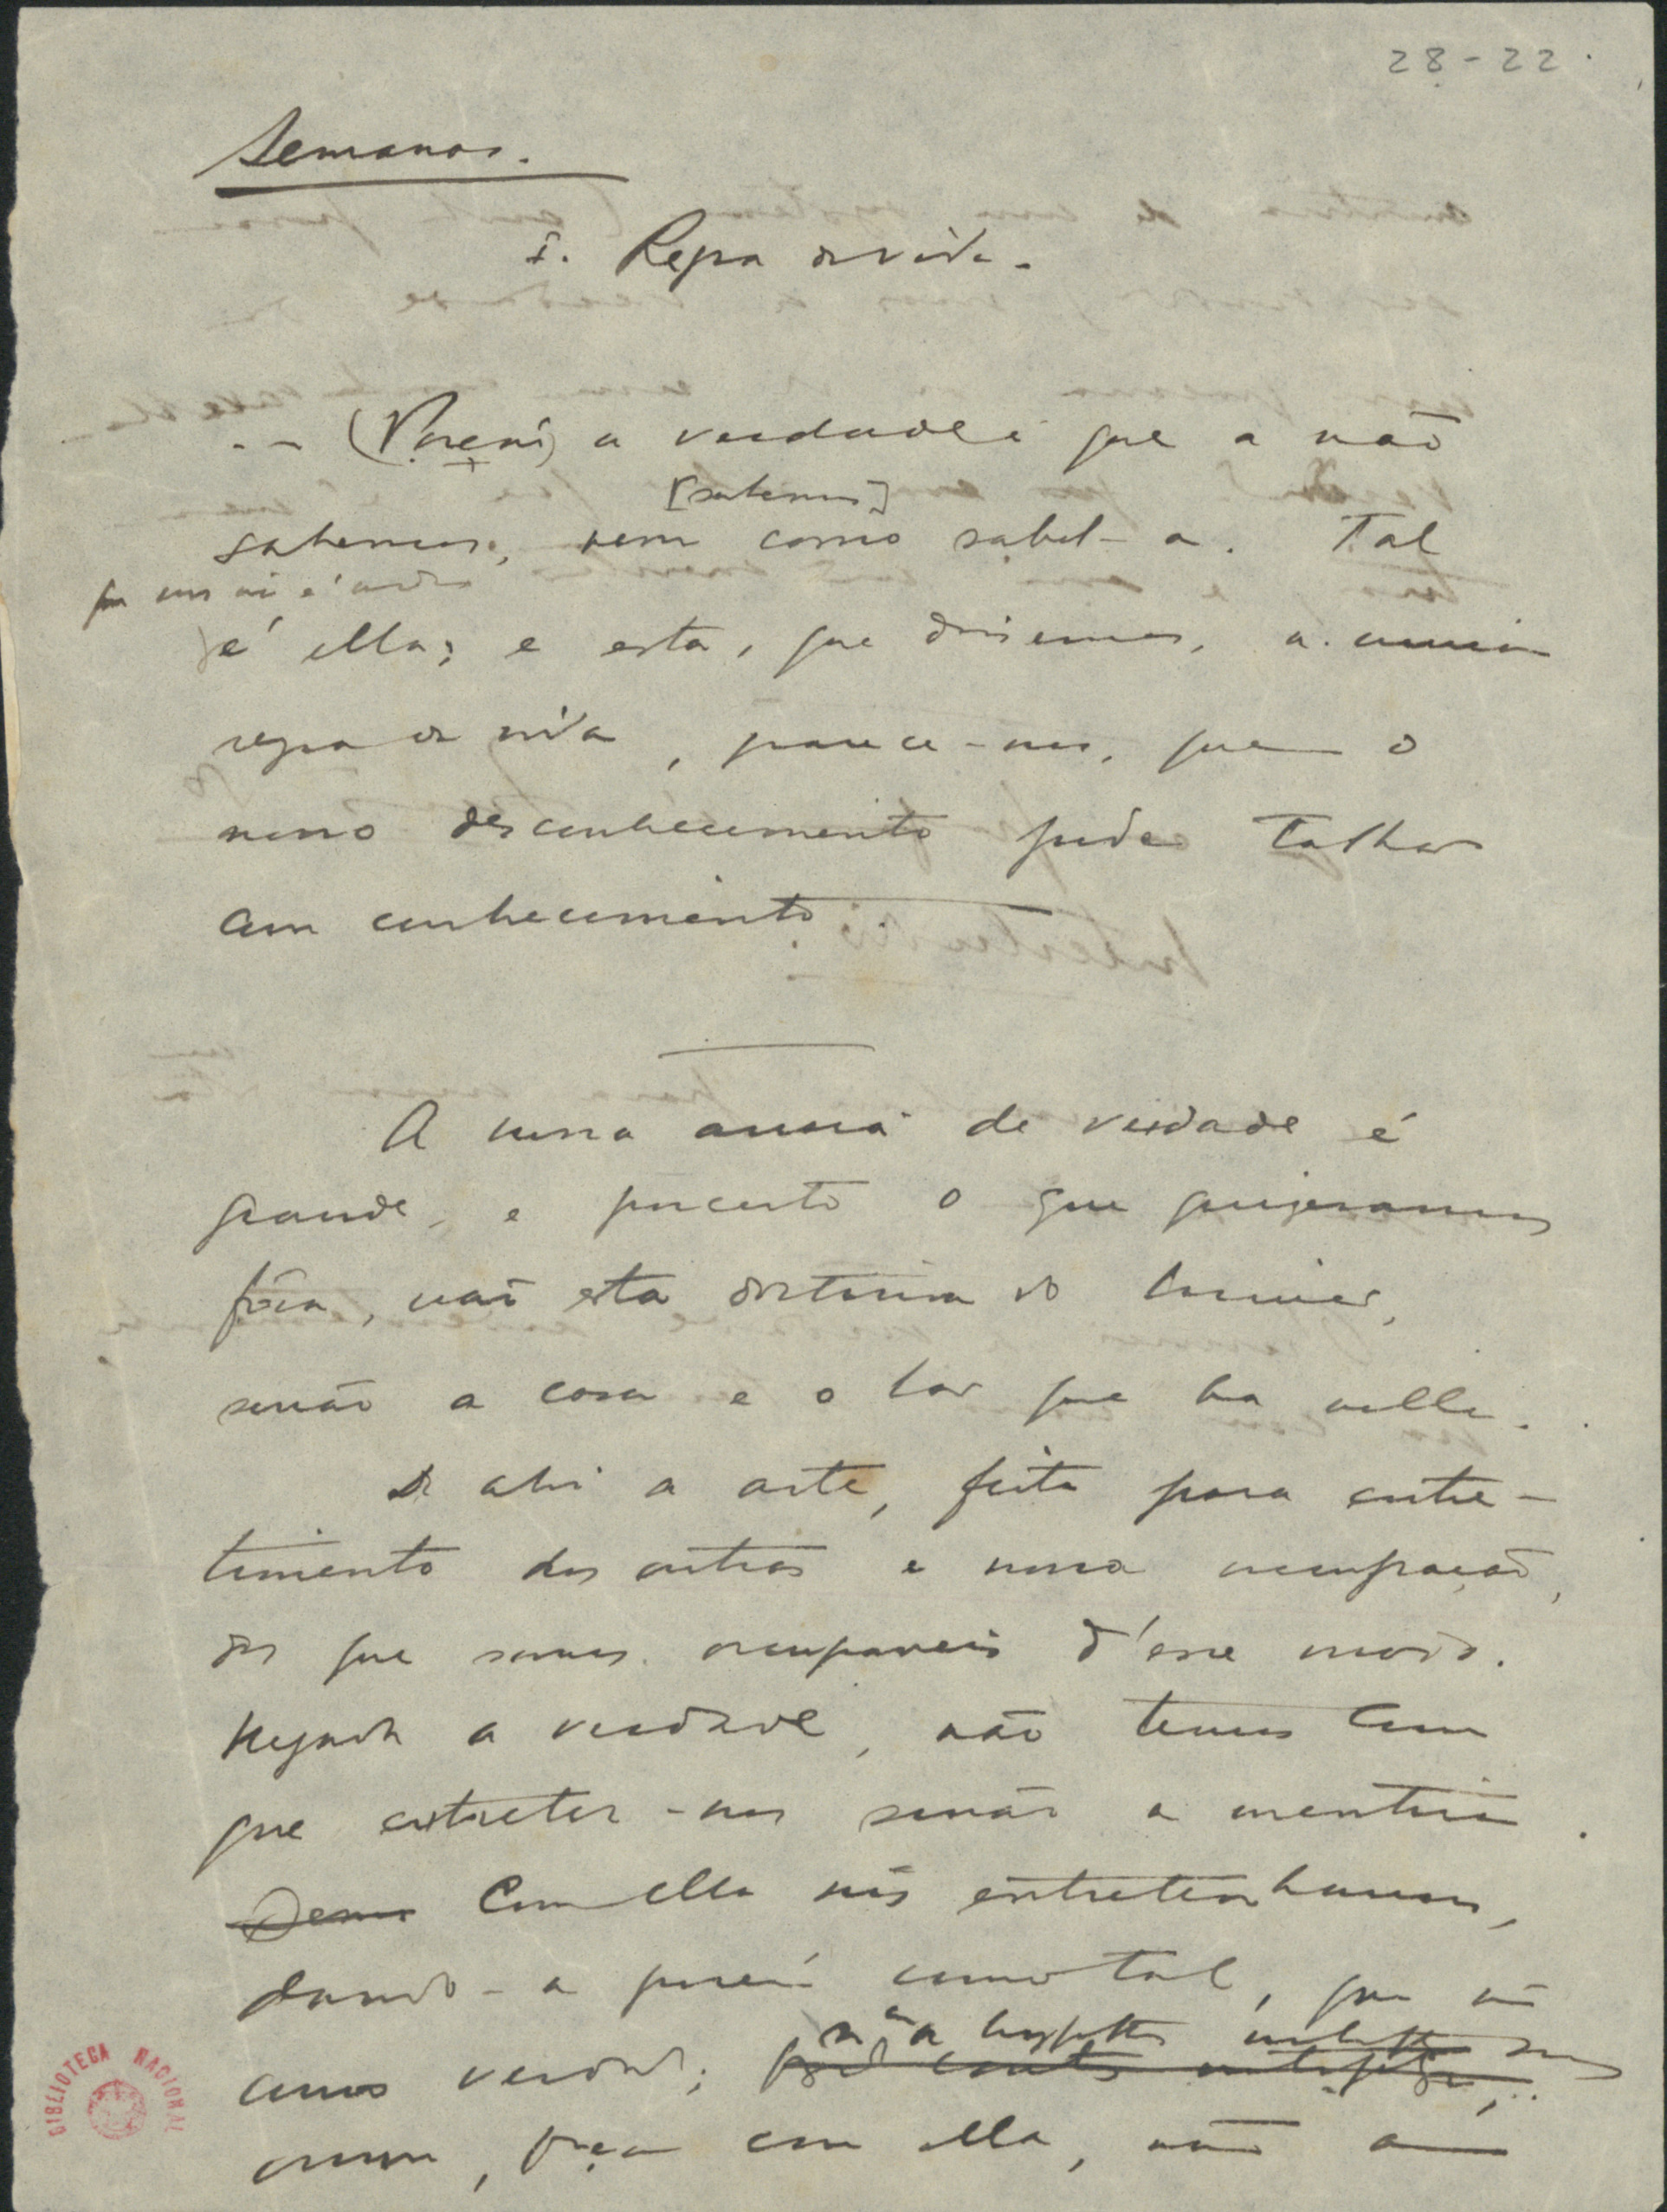 28-22
Semanas.
I. Regra de vida.
-- (Porém) a verdade é que a não
[sabemos]
sabemos, nem como sabel-a. Tal
é ella; e esta, que dissemos, a unica
regra de vida, parece-nos, que o
nosso desconhecimento pode talhar
com conhecimento.
A nossa ancia de verdade é
grande, e por certo o que quizeramos
fôra, não esta doctrina do limiar,
senão a casa e o lar que ha nella.
De ahi a arte, feita para entre-
timento dos outros e nossa occupação,
dos que somos occupaveis d'esse modo.
Negada a verdade, não temos com
que entreter-nos senão a mentira.
Com ella nos entretenhamos,
dando-a porém como tal, que não
como verdade;
, faça com ella, não a
BIBLIOTECA NACIONAL